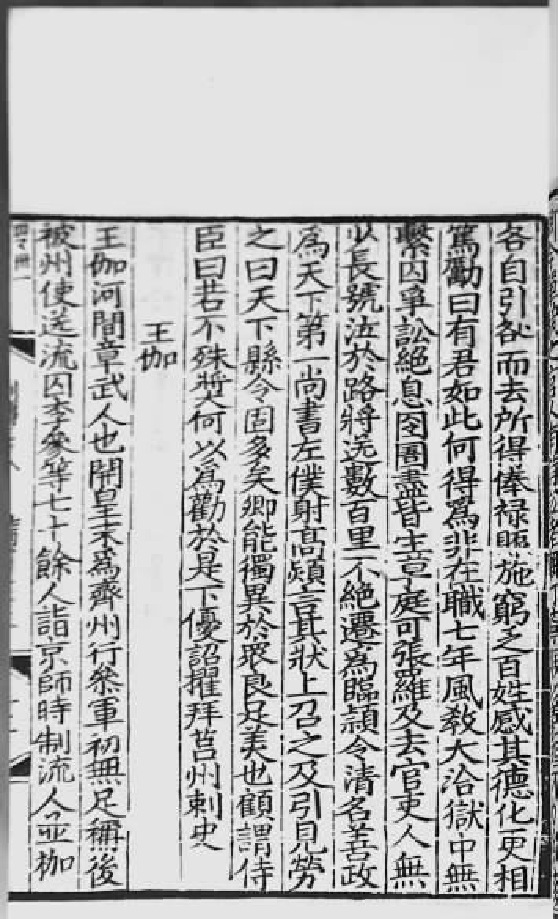 各自引咎而去所得俸禄賑施窮乏百姓感其德化更相
篤勵曰有君如此何得為非在職七年風教大洽獄中無
繫囚爭訟絶息囹圄盡皆生草庭可張羅及去官吏人無
少長號泣於路將送數百里不絶遷為臨潁令清名善政
為天下第一尚書左僕射髙熲言其狀上召之及引見勞
之曰天下縣令固多矣卿能獨異於衆良足美也顧謂侍
臣曰若不殊奬何以為勸於是下優詔擢拜莒州刺史
王伽
王伽河間章武人也開皇末為齊州行叅軍初無足稱後
被州使送流囚李叅等七十餘人詣京師時制流人並枷